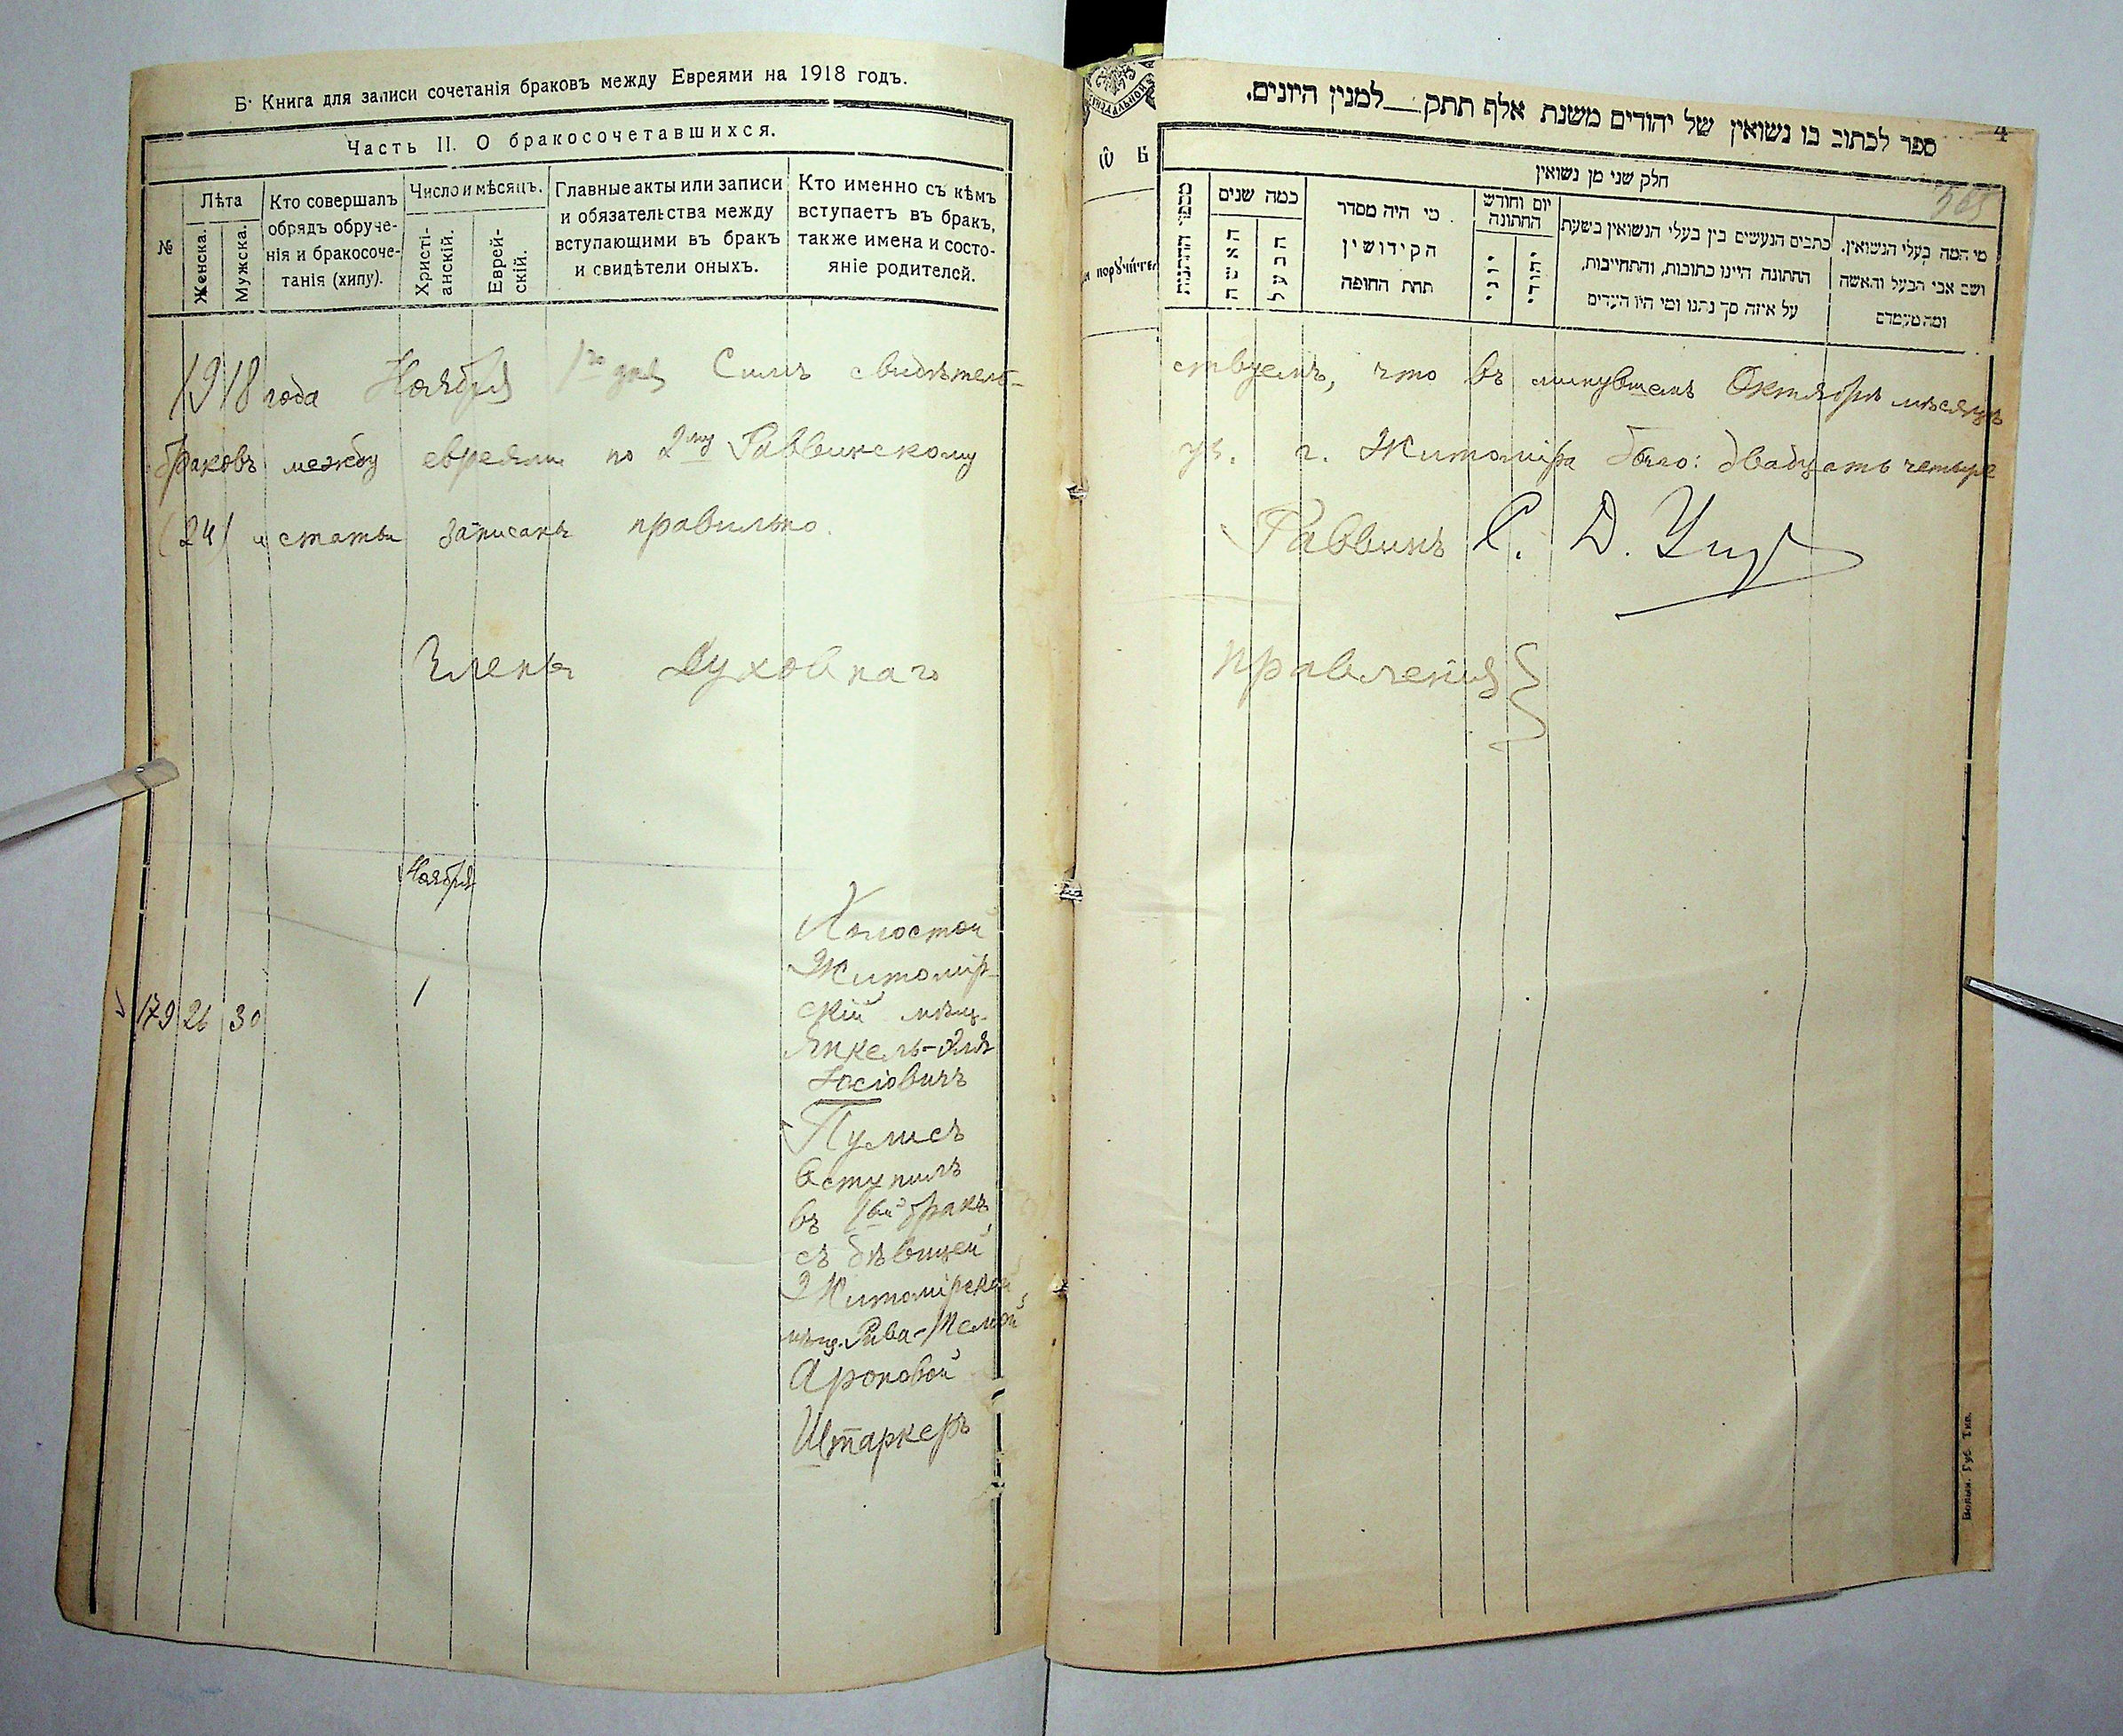 Б. Книга для записи сочетанія браковъ между Евреями на 1918 годъ.
Часть II. О бракосочетавшихся.
№
Лѣта
Женска.
Мужска.
Кто совершалъ
обрядъ обруче-
нія и бракосоче-
танія (хипу).
Число и мѣсяцъ.
Христі-
анскій.
Еврей-
скій.
Главные акты или записи
и обязательства между
вступающими въ бракъ
и свидѣтели оныхъ.
Кто именно съ кѣмъ
вступаетъ въ бракъ,
также имена и состо-
яніе родителей.
1918 года Ноября 1го дня Симъ свидѣтель-
браковъ между евреями по 2му Раввинскому
(24) и статьи записаны правильно.
Члены Духовнаго
Ноября
179 26 30 1
Холостой
Житомір-
скій мѣщ.
Янкель-Эля
Іосіовичъ
Пулисъ
вступилъ
въ 1вый бракъ
съ дѣвицей
Житомірской
мѣщ. Рива-
Ароновой
Штаркеръ
ספר לכתוב בו נשואין של יהודים משנת אלף תתק__למנין היונים.
4
565
חלק שני מן נשואין
כמה שנים
האשה
הבעל
מי היה מסדר
הקידושין
תחת החופה
יום וחודש
החתונה
יוני
יהודי
כתבים הנעשים בין בעלי הנשואין בשעת
החתונה היינו כתובות, והתחייבות,
על איזה סך נתנו ומי היו העדים
מי המה בעלי הנשואין.
ושם אבי הבעל והאשה
ומה מעמדם
ствуемъ, что въ минувшемъ Октябрѣ мѣсяцѣ
уч. г. Житоміра было: двадцать четыре
Раввинъ
правленія
Волын. Губ. Тип.